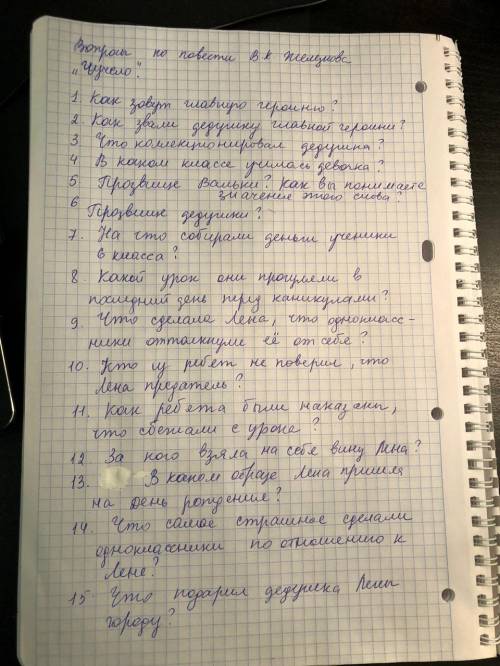 Вопросы по повести В.К Железнов
"Чучело".
1. Как зовут главную героиню?
2 Как звали дедушку главной героини?
3. Что коллекционировал дедушка?
4 В каком классе училась девочка?
5. Прозвище Вальки? Как вы понимаете
значение этого слова?
6 Прозвище дедушки?
7. На что собирали деньги ученики
6 класса?
8. Какой урок они прогуляли в
последний день перед каникулами?
9. Что сделала Лена, что однокласс-
ники оттолкнули её от себя?
10. Кто из ребят не поверил, что
Лена предатель?
11. Как ребята были наказаны,
что сбежали с урока?
12 За кого взяла на себя вину Лена?
13. В каком образе Лена пришла
на день рождение?
14. Что самое страшное сделали
одноклассники по отношению к
Лене?
15 Что подарил дедушка Лены
городу?